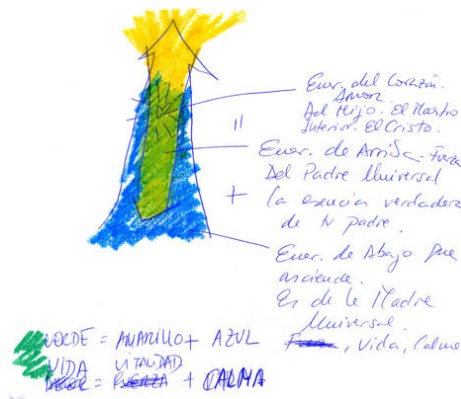 Ener. del Corazón.
Amor
Del Hijo. El Maestro
Interior. El Cristo.
=
Ener. de Arriba. Fuerza
Del Padre Universal
La esencia verdadera
de tu padre.
+
Ener. de Abajo que
asciende.
Es de la Madre
Universal.
Fuerza, Vida, Calma
VERDE = AMARILLO + AZUL
VIDA VITALIDAD
= FUERZA + CALMA